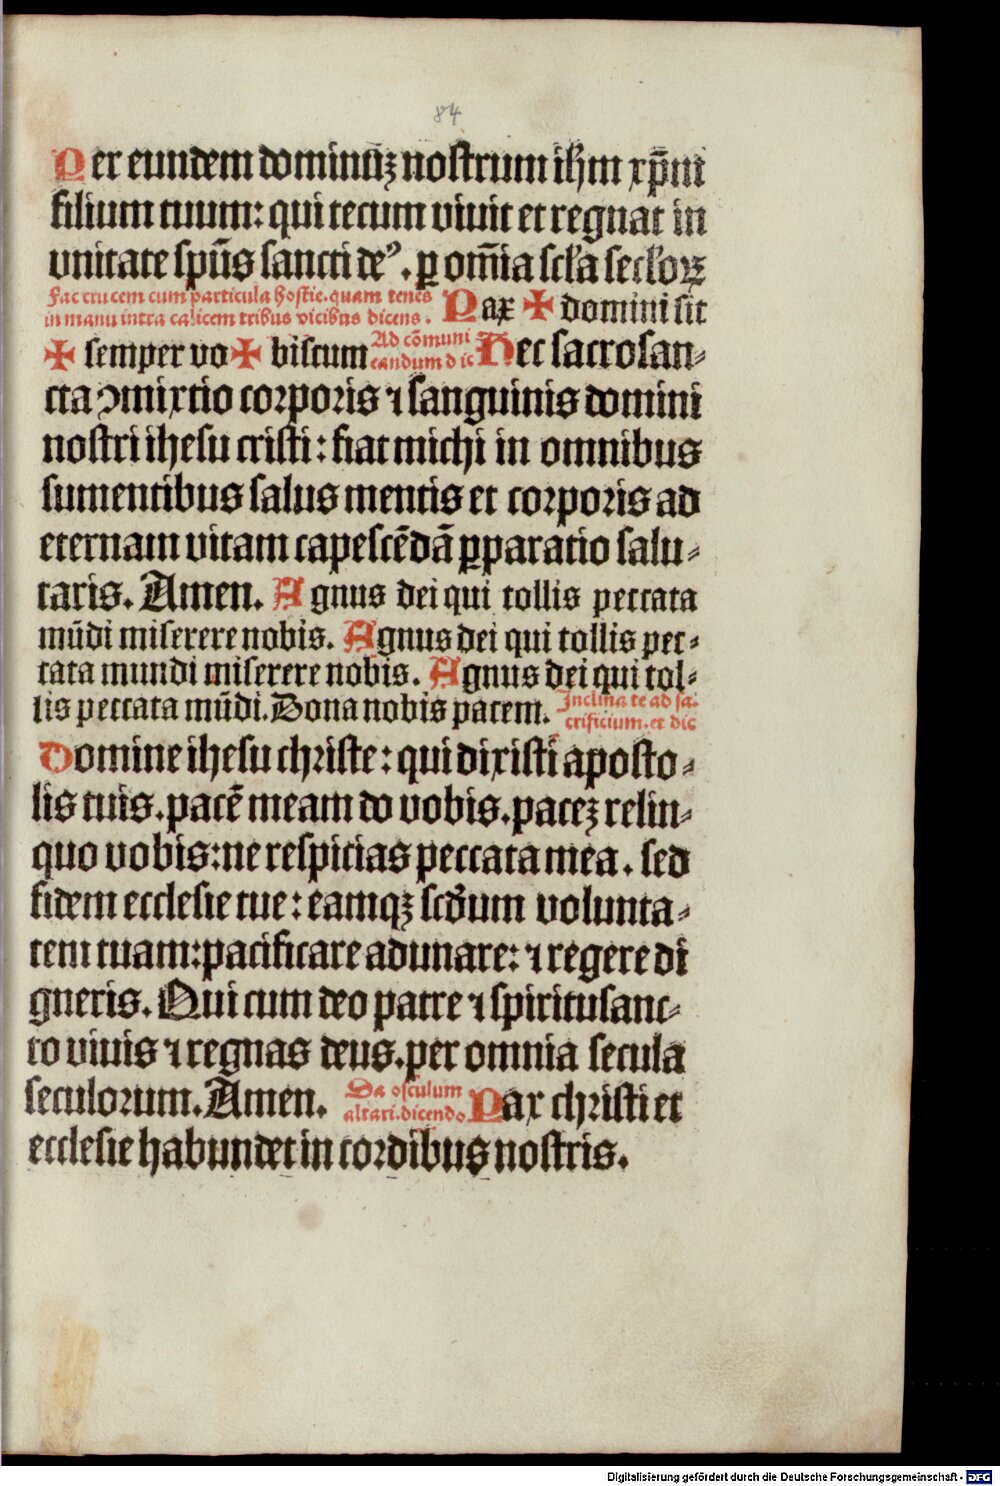 84
Per eundem dominūʒ nostrum ihm xp̄m
filium tuum: qui tecum viuit et regnat in
vnitate sp̄us sancti deꝰ. ꝑ om̄ia scła secłoꝝ
Fac crucem cum particula hostie. quam tenes
in manu intra calicem tribus vicibus dicens. Pax ✠ domini sit
✠ semper vo ✠ biscum Ad cōmuni
candum dic Hec sacrosan⸗
cta ꝯmixtio corporis ⁊ sanguinis domini
nostri ihesu cristi: fiat michi in omnibus
sumentibus salus mentis et corporis ad
eternam vitam capescēdā p̱paratio salu⸗
taris. Amen. Agnus dei qui tollis peccata
mūdi miserere nobis. Agnus dei qui tollis pec⸗
cata mundi miserere nobis. Agnus dei qui tol⸗
lis peccata mūdi. Dona nobis pacem. Inclina te ad sa⸗
crificium. et dic
Domine ihesu christe: qui dixisti aposto⸗
lis tuis. pacē meam do vobis. paceʒ relin⸗
quo vobis: ne respicias peccata mea. sed
fidem ecclesie tue: eamqʒ scđum volunta⸗
tem tuam: pacificare adunare: ⁊ regere di
gneris. Qui cum deo patre ⁊ spiritusanc⸗
to viuis ⁊ regnas deus. per omnia secula
seculorum. Amen. Da osculum
altari. dicendo Pax christi et
ecclesie habundet in cordibus nostris.
Digitalisierung gefördert durch die Deutsche Forschungsgemeinschaft - DFG